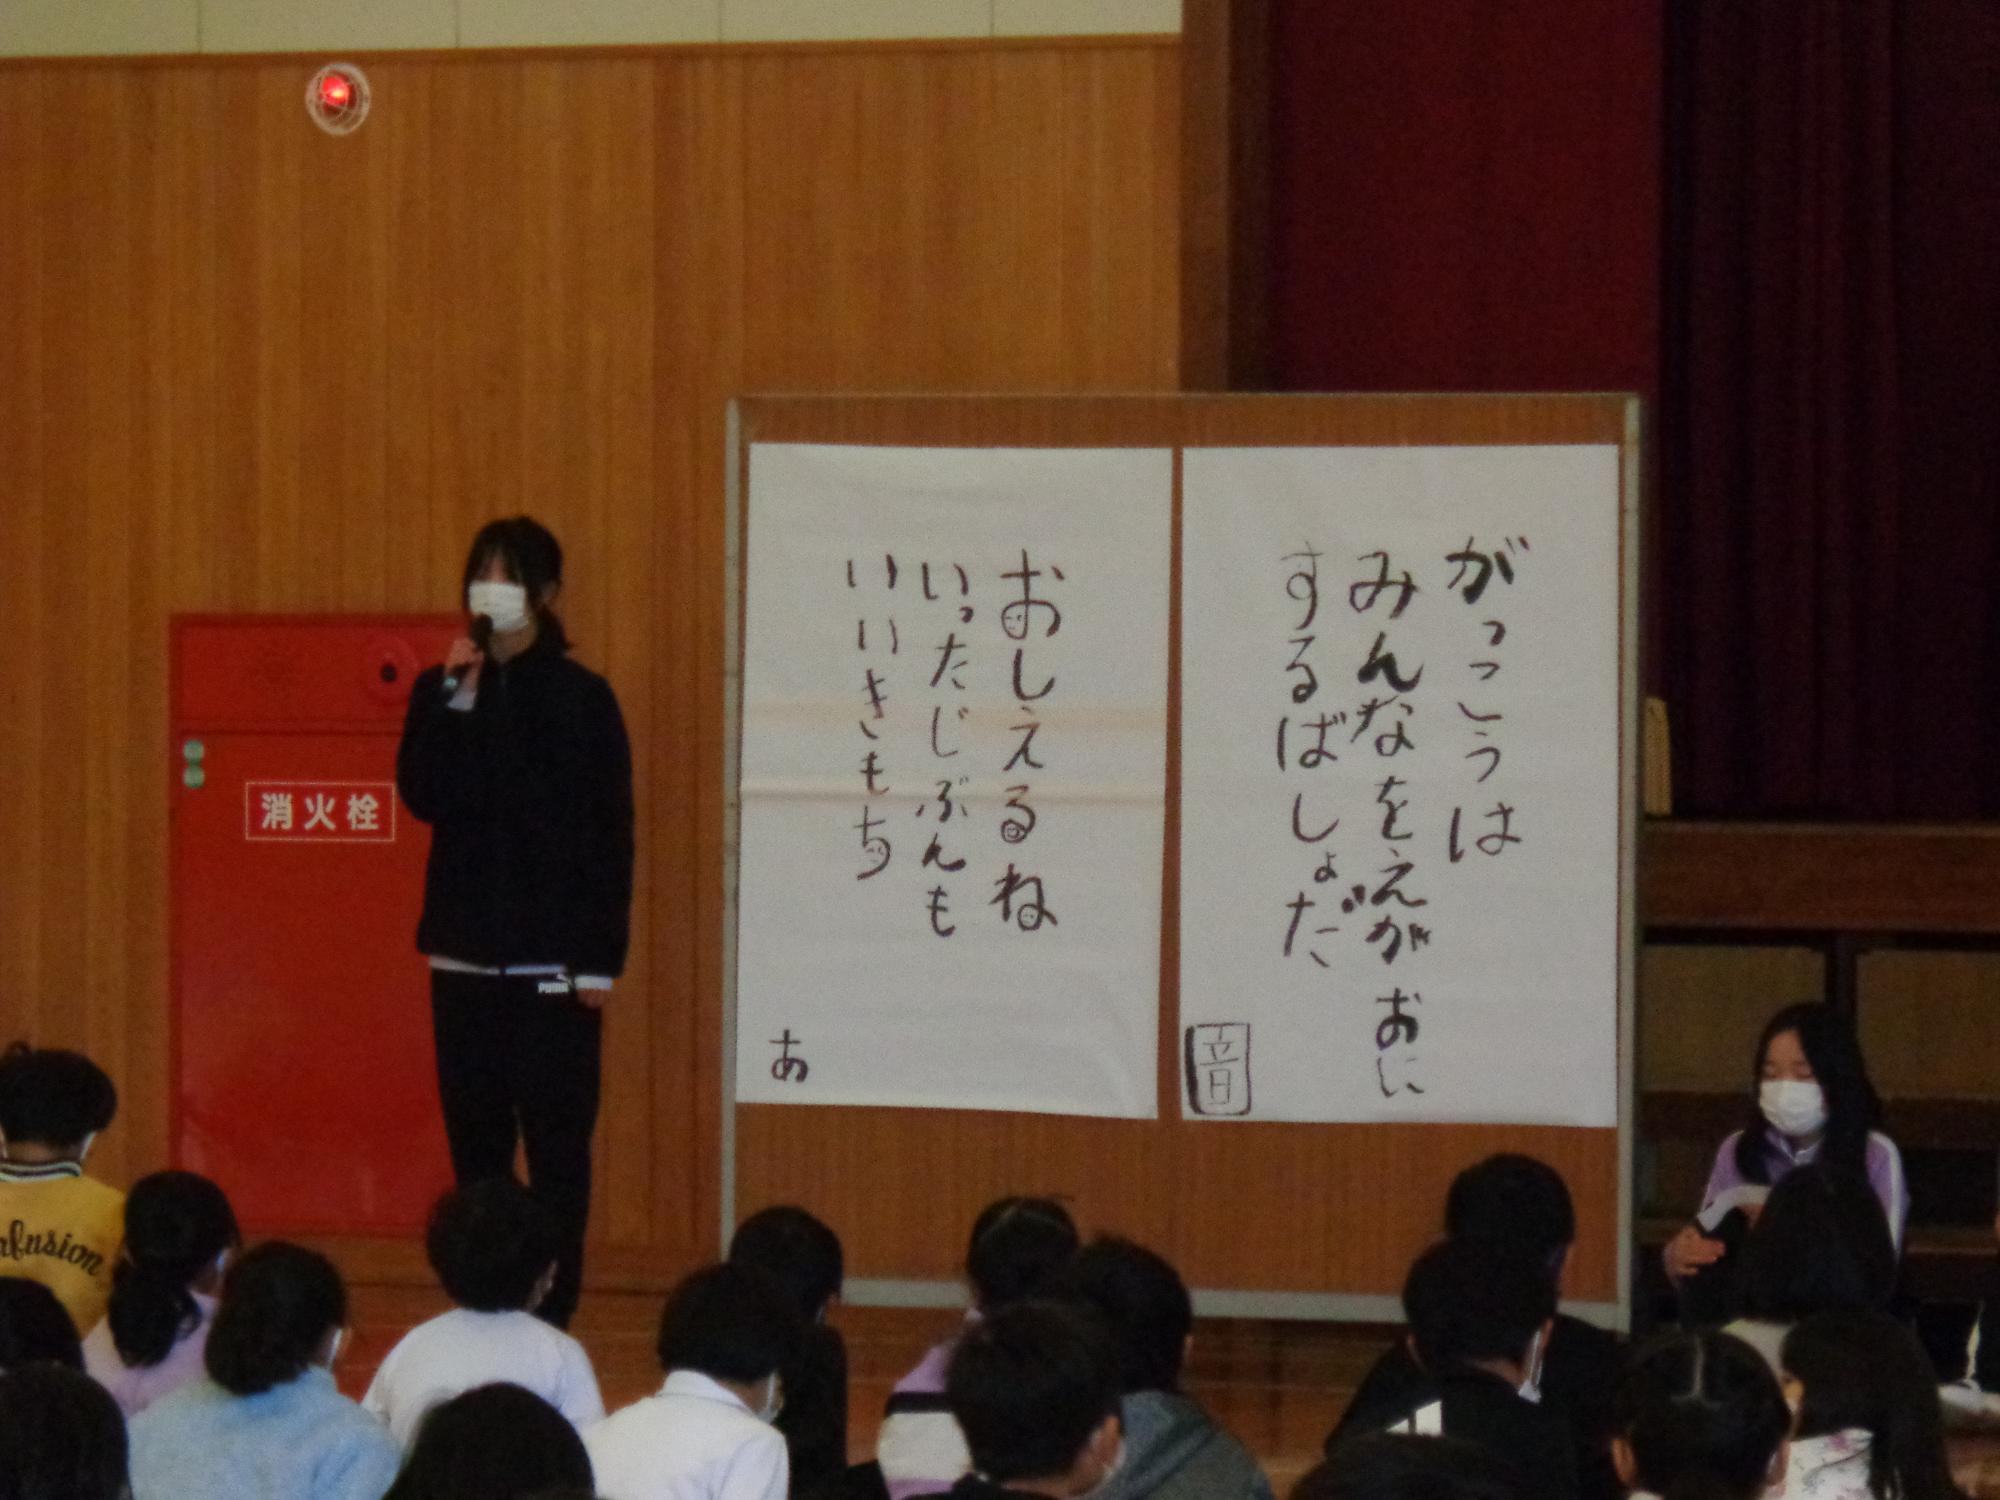 がっこうは
みんなをえがおに
するばしょだ
音
おしえるね
いったじぶんも
いいきもち
あ
消火栓
PUMA